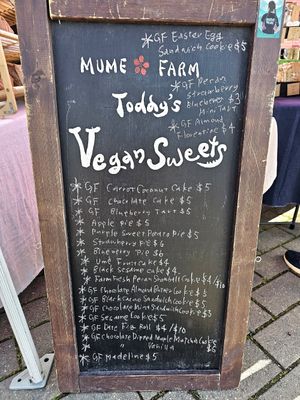 * GF Easter Egg
Sandwich Cookie $5
MUME FARM
* GF Pecan
Strawberry
Blueberry $3
Mini Tart
Today's
* GF Almond
Florentine $4
Vegan Sweets
* GF Carrot Coconut Cake $5
* GF Chocolate Cake $5
* GF Blueberry Tart $5
* Apple Pie $5
* Purple Sweet Potato Pie $5
* Strawberry Pie $6
* Blueberry Pie $6
* Ume Fruit Cake $4
* Black Sesame Cake $4
* Farm Fresh Pecan Snowball Cookie $4/$10
* GF Chocolate Almond Butter Cookie $3
* GF Black Cacao Sandwich Cookie $5
* GF Chocolate Mint Sandwich Cookie $5
* GF Sesame Cookie $5
* GF Date Fig Roll $4/$10
* GF Chocolate Dipped Maple Matcha Cookie $5
" " Vanilla " $5
* GF Madeline $5